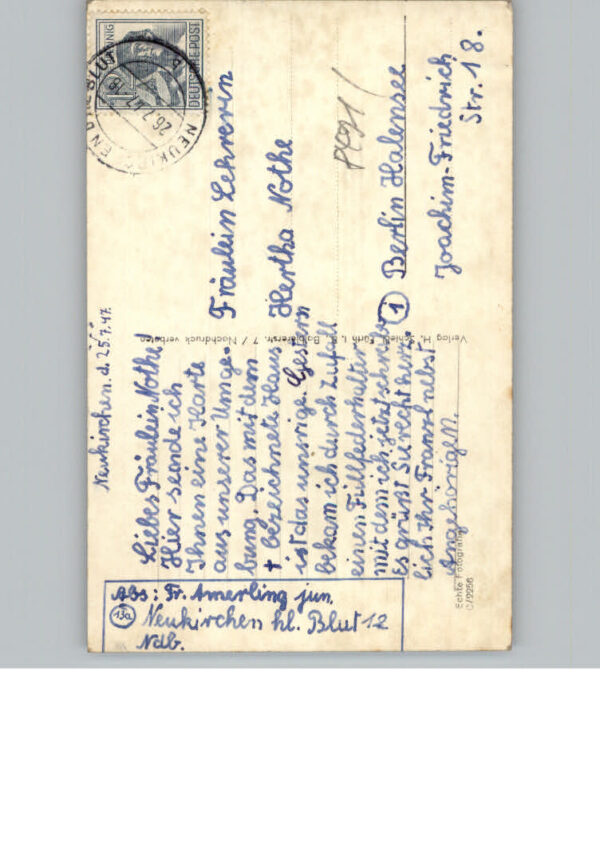 Neukirchen. d. 25.7.47.
Liebes Fräulein Nothe!
Hier sende ich
Ihnen eine Karte
aus unserer Umge-
bung. Das mit dem
+ bezeichnete Haus
ist das unsrige. Gestern
bekam ich durch Zufall
einen Füllfederhalter
mit dem ich jetzt schreibe
Es grüßt Sie recht herz-
lich Ihr Franzl nebst
Angehörigen.
Abs: Fr. Amerling jun.
13a Neukirchen hl. Blut 12
Ndb.
PFENNIG
DEUTSCHE POST
26.7.47.18
Fräulein Lehrerin
Hertha Nothe
1 Berlin Halensee
Joachim-Friedrich
Str. 18.
Verlag H. Fürth i. B. 7 / Nachdruck verboten
Echte Fotografie
C/2256